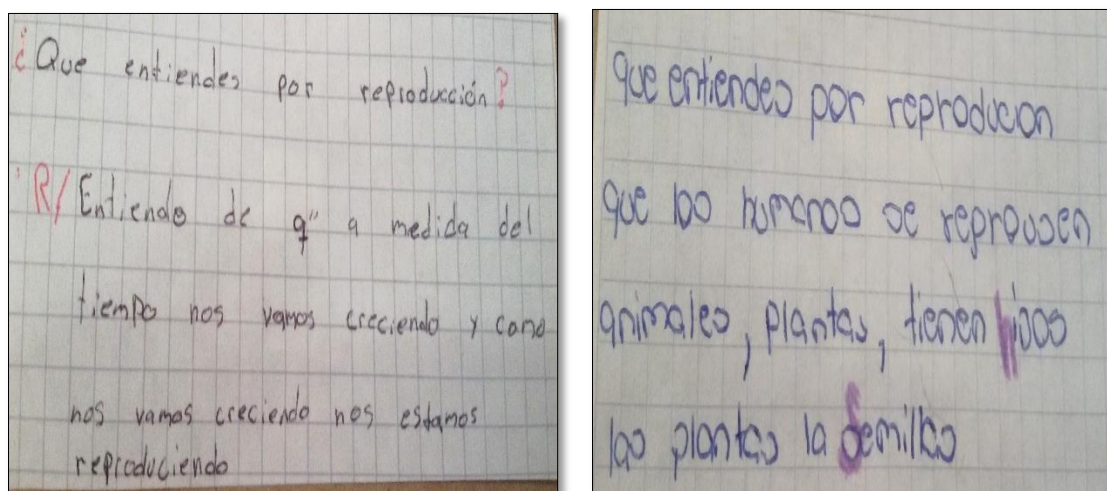 ¿Que entiendes por reproducción?
R/Entiendo de q" a medida del
tiempo nos vamos creciendo y como
nos vamos creciendo nos estamos
reproduciendo
que entiendes por reproducon
que los humanos se reproducen
animales, plantas, tienen hijos
las plantas la semillas